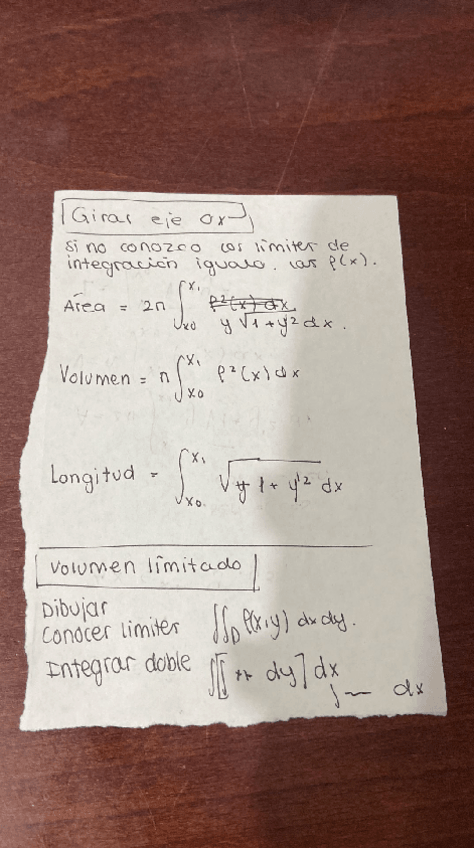 Girar eje ox
si no conozco los límites de
integración igualo las f(x).
Área = 2π ∫ x₁ x0 y √1 + y'² dx.
Volumen = π ∫ x₁ x0 f²(x) dx
Longitud = ∫ x₁ x0 √ 1 + y'² dx
Volumen limitado
Dibujar
Conocer limites ∬D f(x,y) dx dy.
Integrar doble ∫[∫ dy] dx
∫ dx